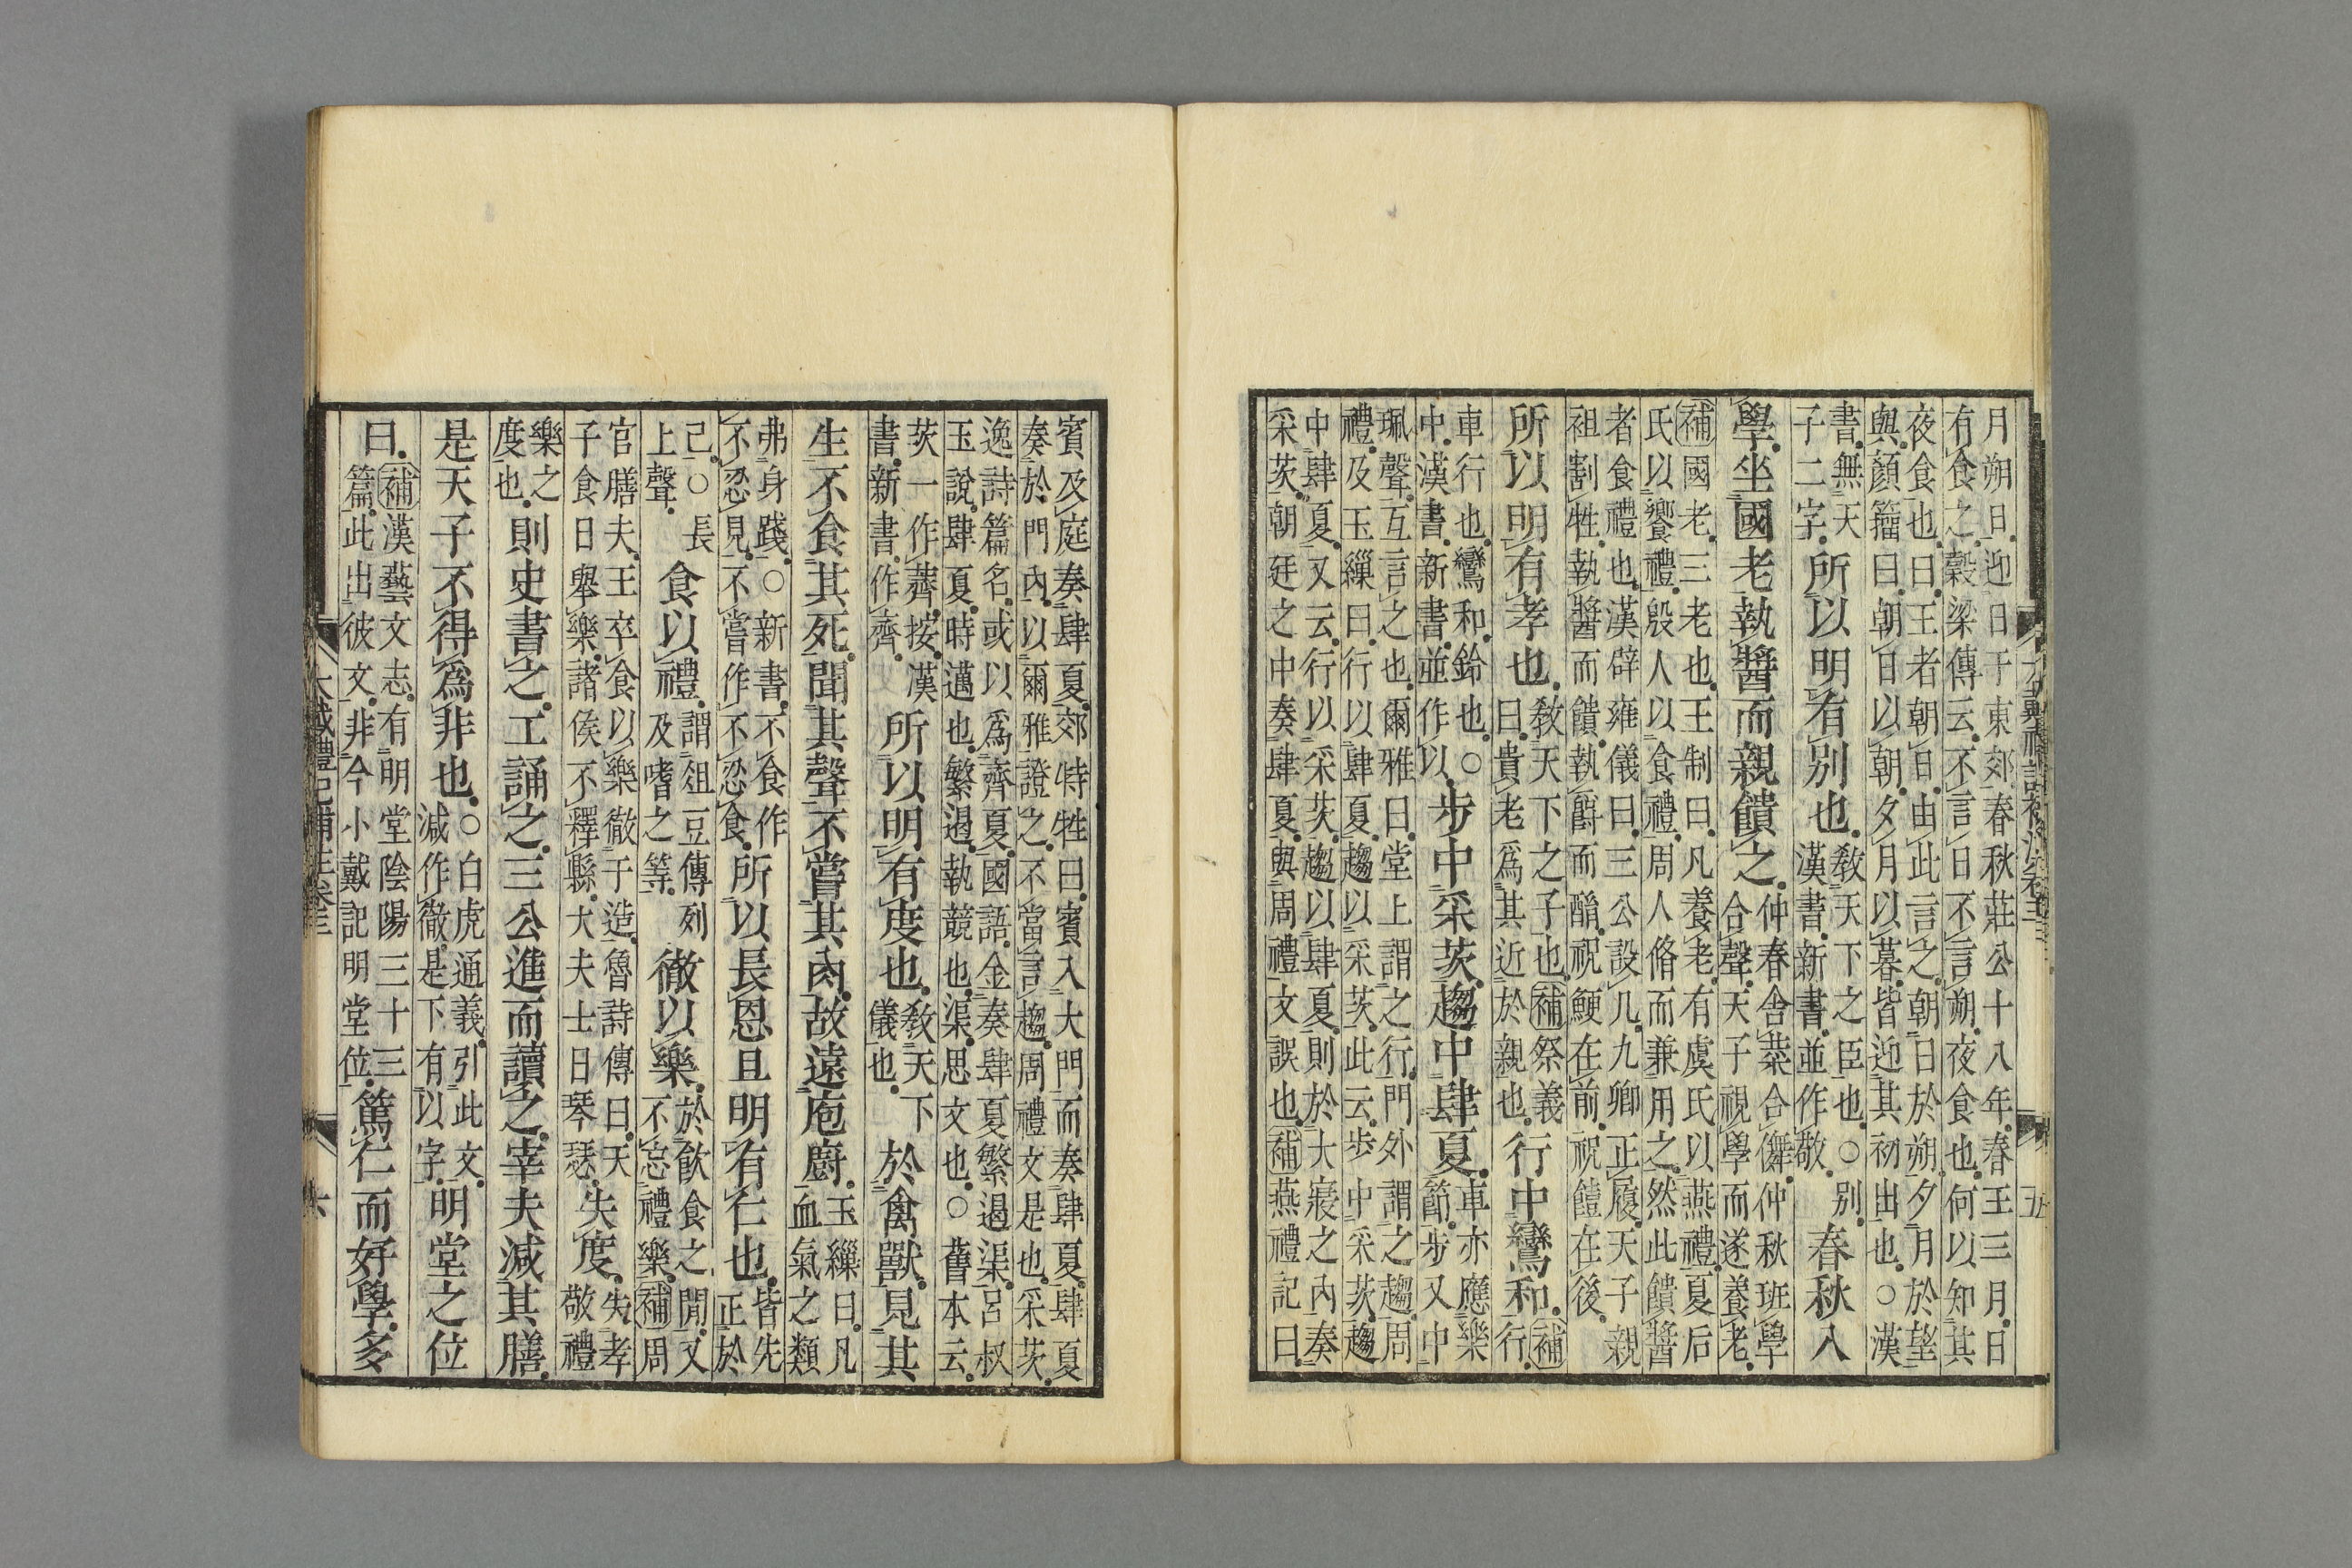 大戴禮記補注卷三 五
月朔日迎日于東郊春秋莊公十八年春王三月日
有食之穀梁傳云不言日不言朔夜食也何以知其
夜食也曰王者朝日由此言之朝日於朔夕月於望
與顏籀曰朝日以朝夕月以暮皆迎其初出也○漢
書無天
子二字
所以明有別也
敎天下之臣也○別
漢書新書並作敬
春秋入
學坐國老執醬而親饋之
仲春舍菜合儛仲秋班學
合聲天子視學而遂養老
補國老三老也王制曰凡養老有虞氏以燕禮夏后
氏以饗禮殷人以食禮周人脩而兼用之然此饋醬
者食禮也漢辟雍儀曰三公設几九卿正履天子親
袒割牲執醬而饋執爵而酳祝鯁在前祝饐在後
所以明有孝也
敎天下之子也補祭義
曰貴老爲其近於親也
行中鸞和
補
行
車行也鸞和鈴也○
中漢書新書並作以
步中采茨趨中肆夏
車亦應樂
節步又中
珮聲互言之也爾雅曰堂上謂之行門外謂之趨周
禮及玉繅曰行以肆夏趨以采茨此云步中采茨趨
中肆夏又云行以采茨趨以肆夏則於大寢之內奏
采茨朝廷之中奏肆夏與周禮文誤也補燕禮記曰
賓及庭奏肆夏郊特牲曰賓入大門而奏肆夏肆夏
奏於門內以爾雅證之不當言趨周禮文是也采茨
逸詩篇名或以爲齊夏國語金奏肆夏繁遏渠呂叔
玉說肆夏時邁也繁遏執競也渠思文也○舊本云
茨一作薺按漢
書新書作齊
所以明有度也
敎天下
儀也
於禽獸見其
生不食其死聞其聲不嘗其肉故遠庖廚
玉繅曰凡
血氣之類
弗身踐○新書不食作
不忍見不嘗作不忍食
所以長恩且明有仁也
皆先
正於
己○長
上聲
食以禮
謂俎豆傳列
及嗜之等
徹以樂
於飮食之閒又
不忘禮樂補周
官膳夫王卒食以樂徹于造魯詩傳曰天
子食日舉樂諸侯不釋縣大夫士日琴瑟
失度
失孝
敬禮
樂之
度也
則史書之工誦之三公進而讀之宰夫減其膳
是天子不得爲非也
○白虎通義引此文
減作徹是下有以字
明堂之位
曰
補漢藝文志有明堂陰陽三十三
篇此出彼文非今小戴記明堂位
篤仁而好學多
大戴禮記補注卷三 六